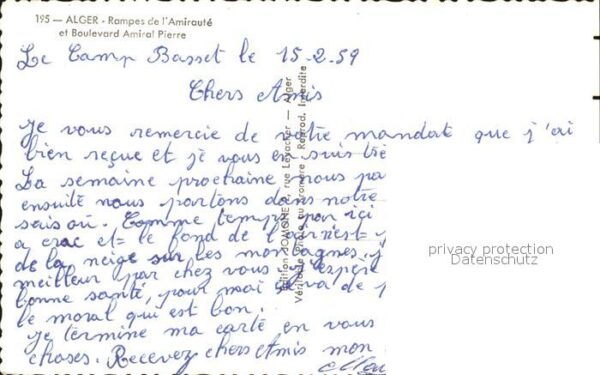 195 — ALGER - Rampes de l'Amirauté
et Boulevard Amiral Pierre
Le Camp Basset le 15-2-59
Chers Amis
Je vous remercie de votre mandat que j'ai
bien reçue et je vous en suis trè
La semaine prochaine nous pa
ensuite nous partons dans notre
Comme temps par ici
a et le fond de l'air est
de la neige sur les montagnes. j
meilleur par chez vous. J'espère
bonne santé, pour moi ça va de
le moral qui est bon.
Je termine ma carte en vous
choses. Recevez chers Amis mon
Edition JOMONE, rue Levacher — Alger
Véritable Photo au bromure - Reprod. Interdite
privacy protection
Datenschutz